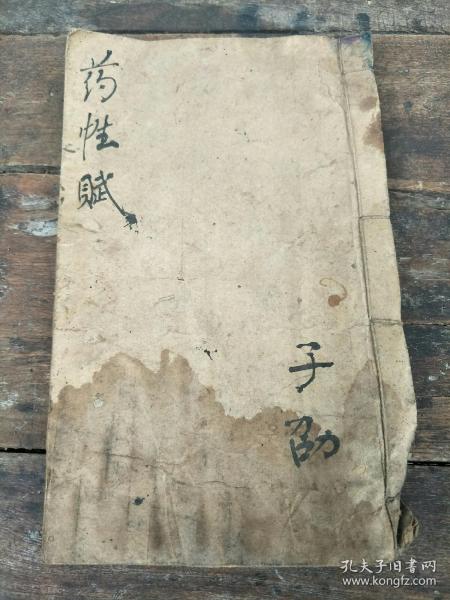 药性賦
子劭
孔夫子旧书网
www.kongfz.com